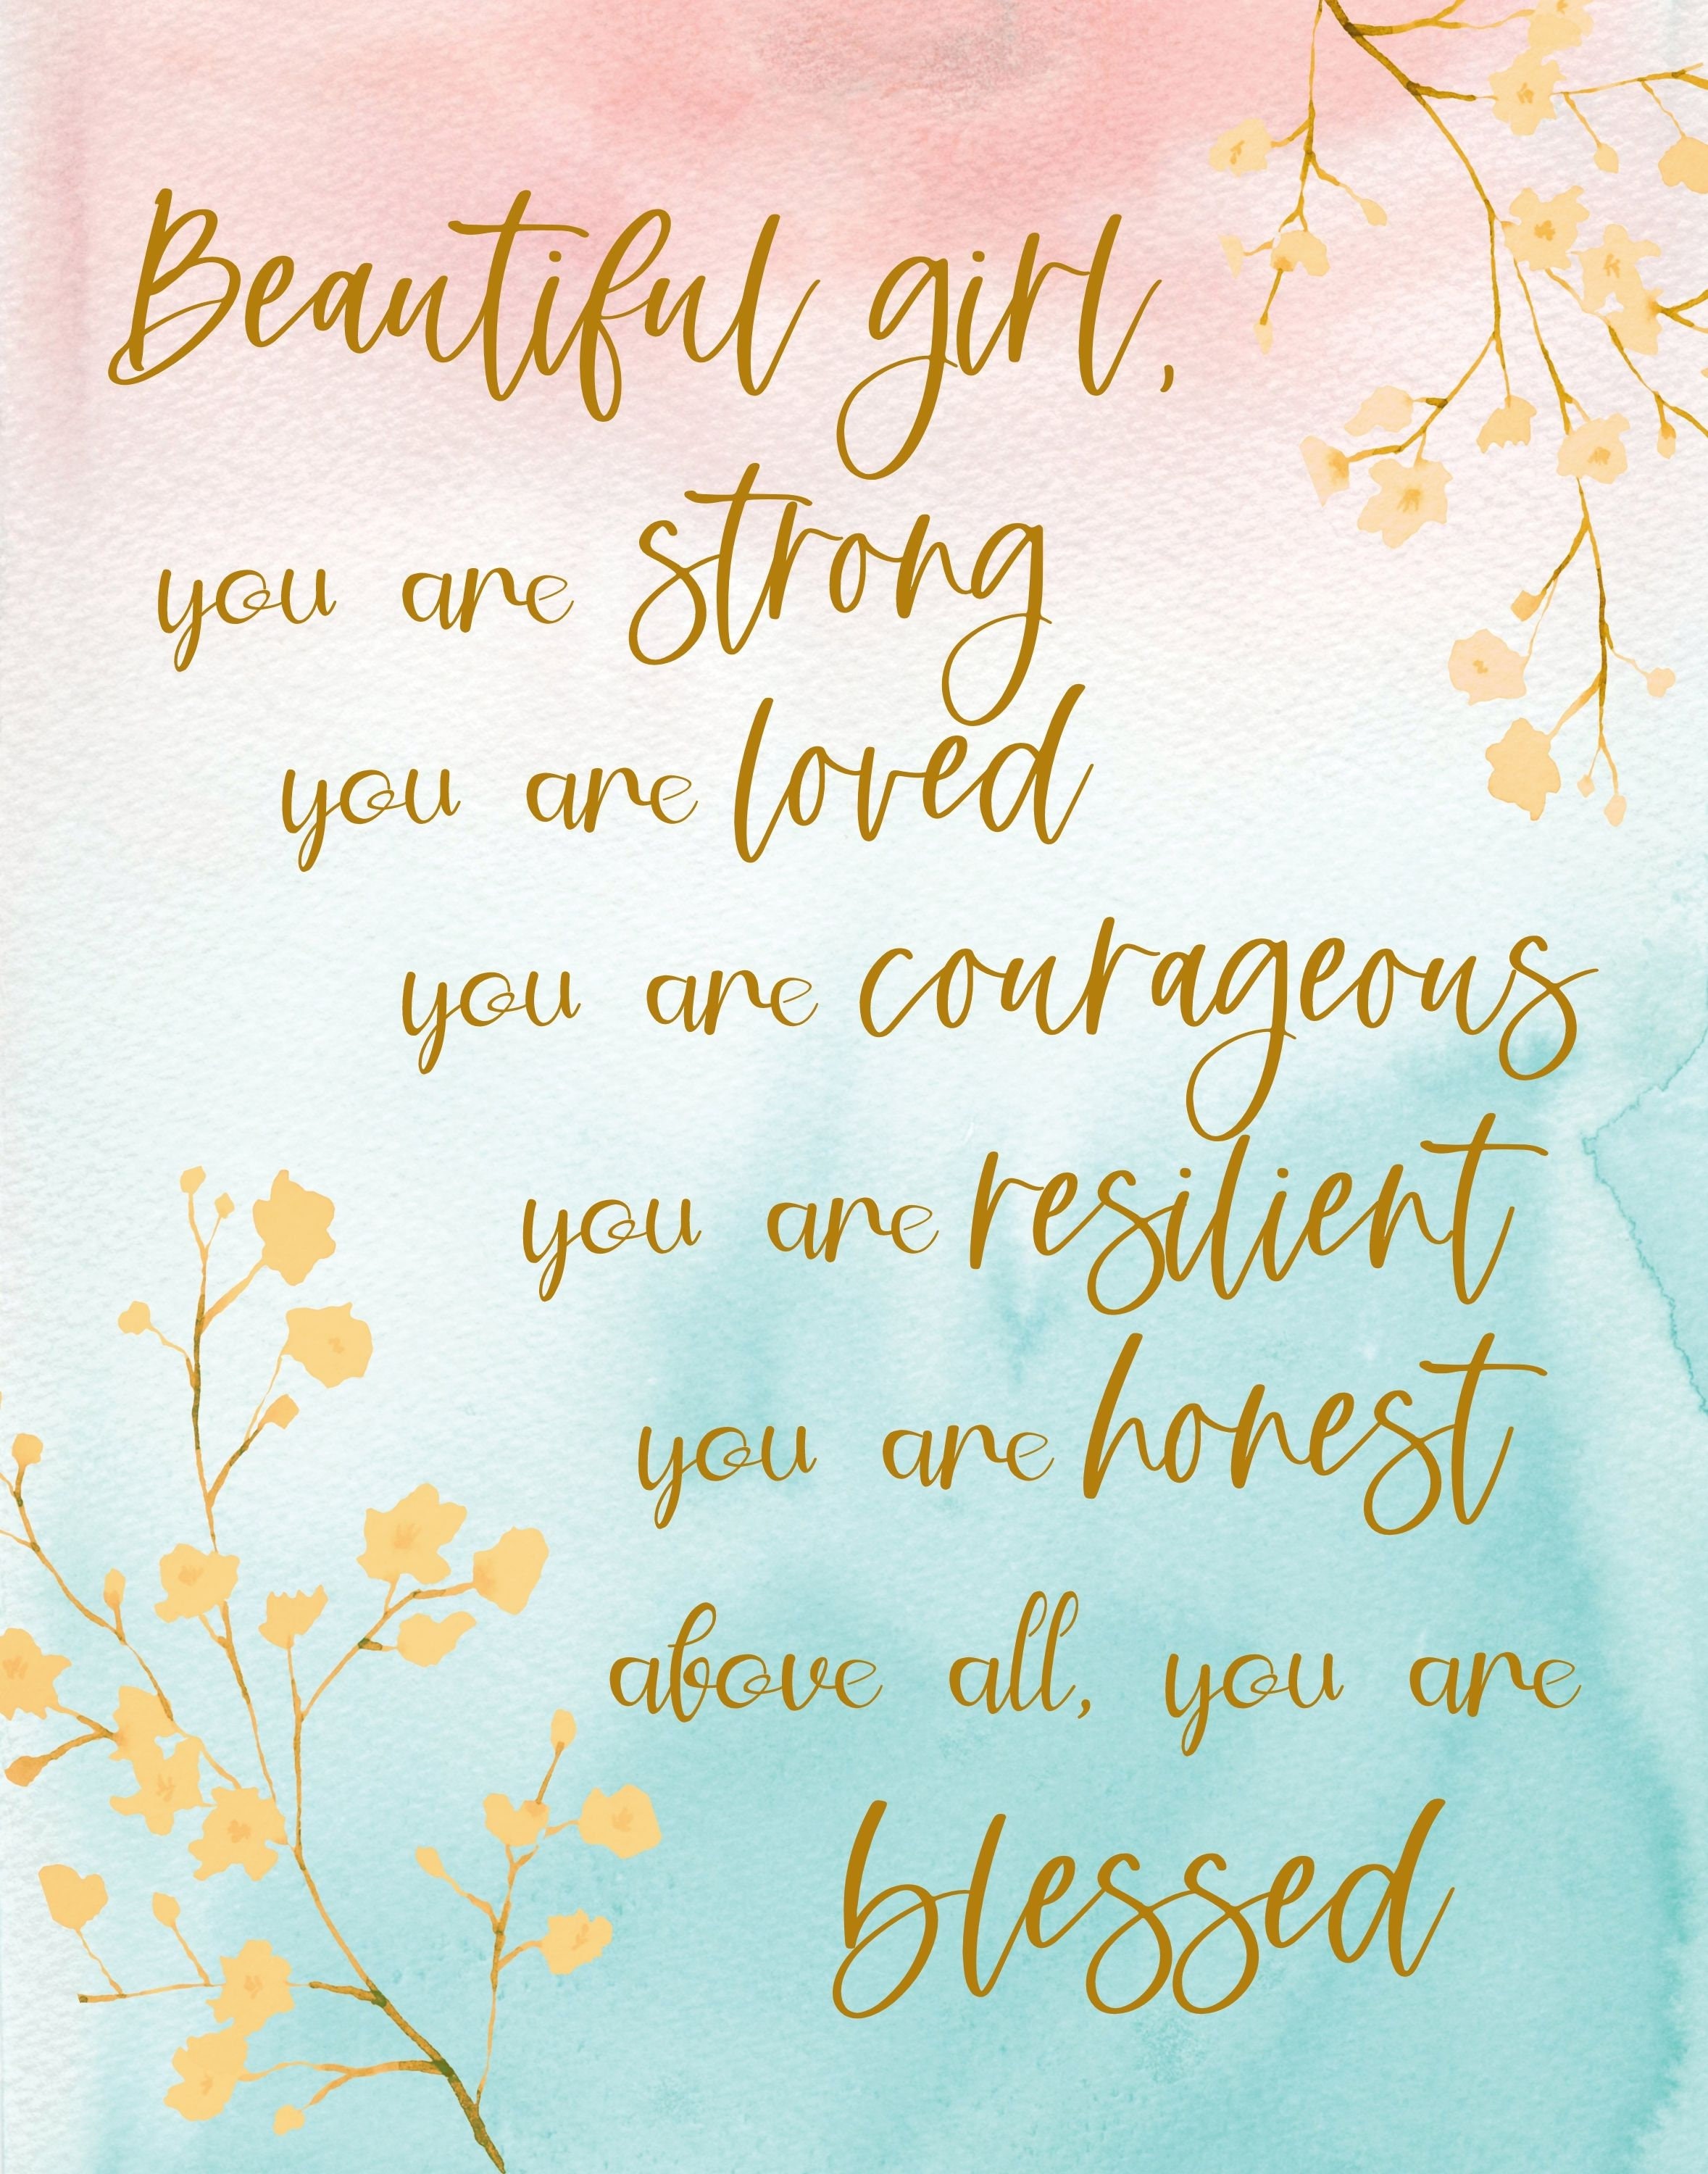 Beautiful girl,
you are strong
you are loved
you are courageous
you are resilient
you are honest
above all, you are
blessed